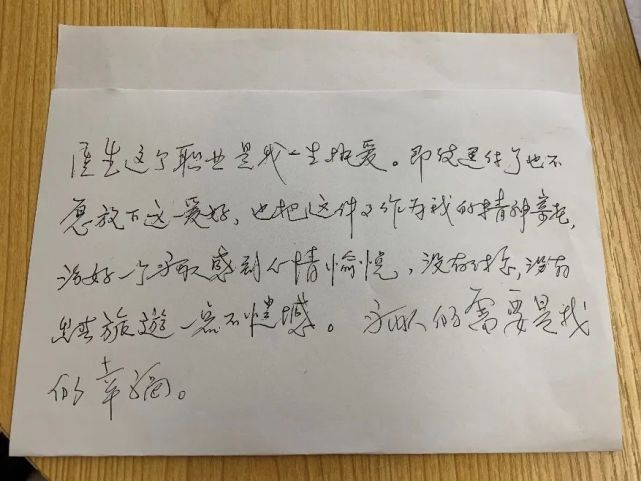 医生这个职业是我一生挚爱。即使退休了也不
愿放下这一爱好，也把这件工作为我的精神寄托，
治好一个 感到心情愉悦，没有 没有
旅遊一点不遗憾。 的需要是我
的幸福。